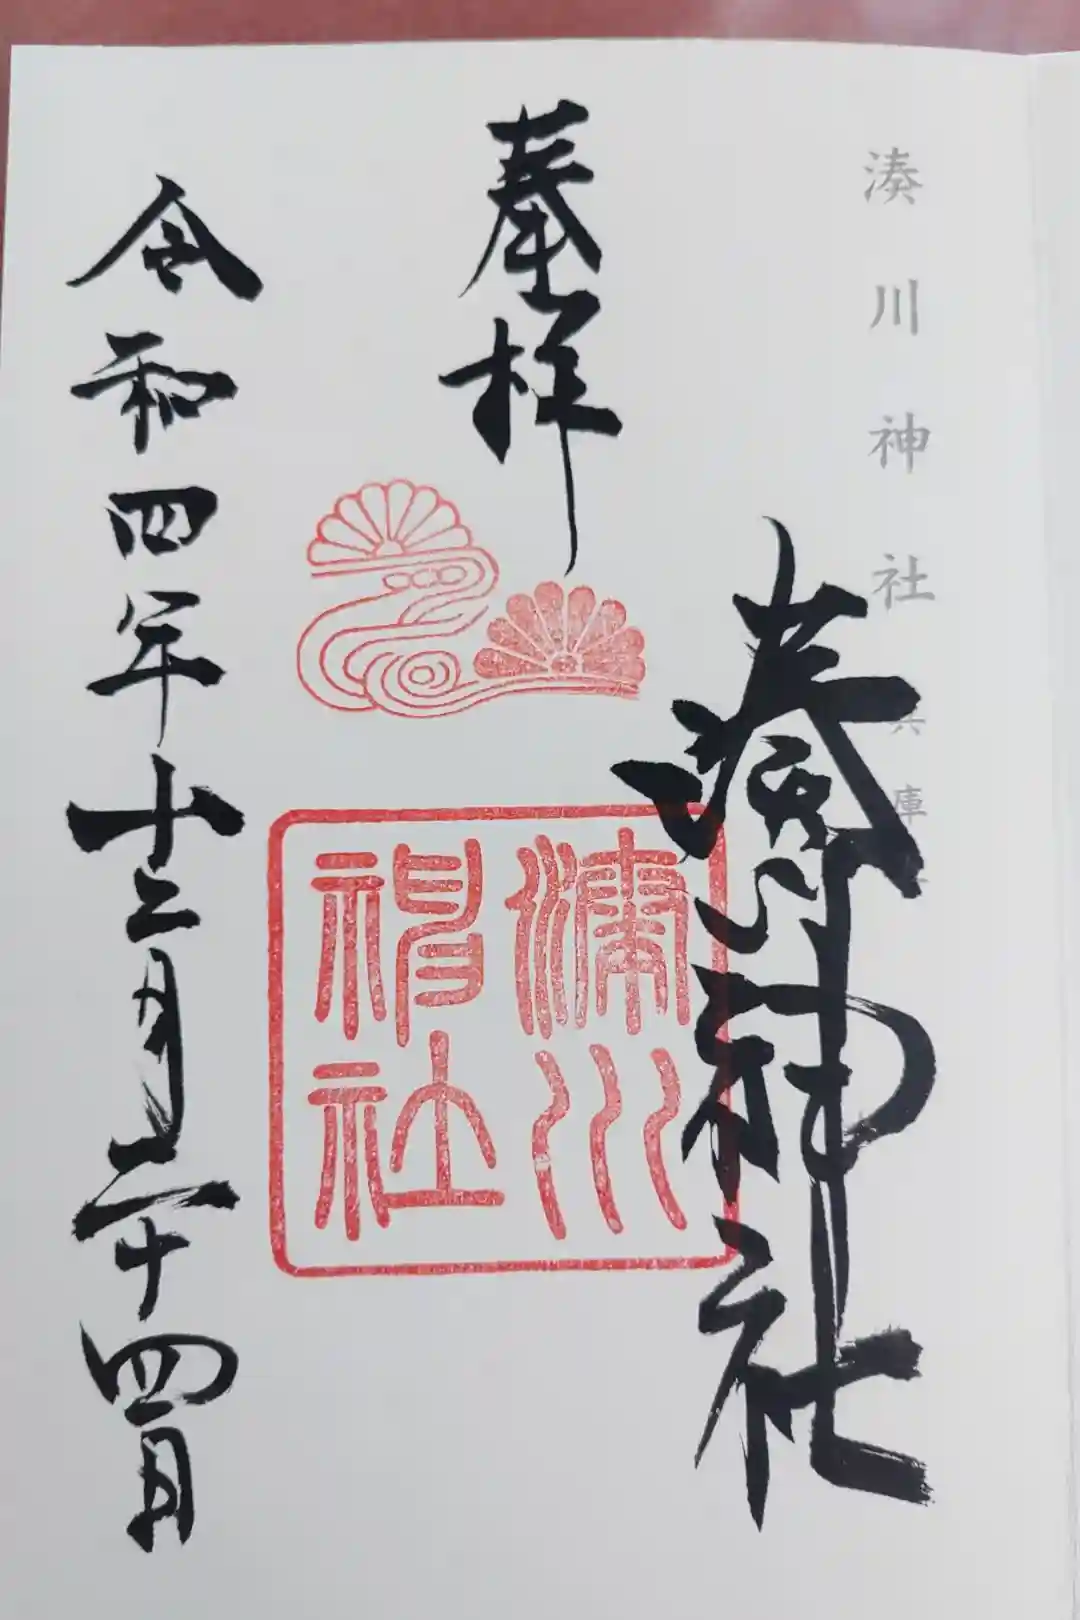 湊川神社 兵庫
湊川神社
奉拝
湊川
神社
令和四年十二月二十四日